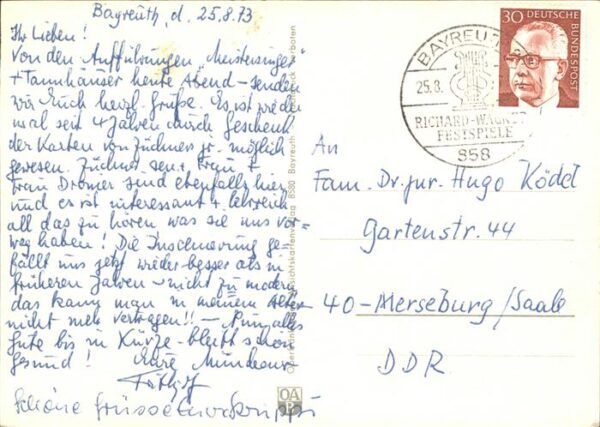 Bayreuth, d. 25.8.73
Ihr Lieben!
Von den Aufführungen „Meistersinger"
+ Tannhäuser heute Abend – senden
wir Euch herzl. Grüße. Es ist wieder
mal seit 4 Jahren durch Geschenk
der Karten von Züchner jr. möglich
gewesen. Züchner sen. + Frau +
Frau Dromer sind ebenfalls hier
und es ist interessant + lehrreich
all das zu hören, was sie uns vor-
weg haben! Die Inszenierung ge-
fällt uns jetzt wieder besser als in
früheren Jahren – nicht zu modern
das kann man in meinem Alter
nicht mehr vertragen!! – Nun alles
Gute bis in Kürze – bleibt schön
gesund! Eure
schöne Grüsse
30 DEUTSCHE BUNDESPOST
BAYREUTH
25.8.
RICHARD-WAGNER
FESTSPIELE
858
An
Fam. Dr. jur. Hugo Ködel
Gartenstr. 44
40-Merseburg/Saale
DDR
8580 Bayreuth
OA